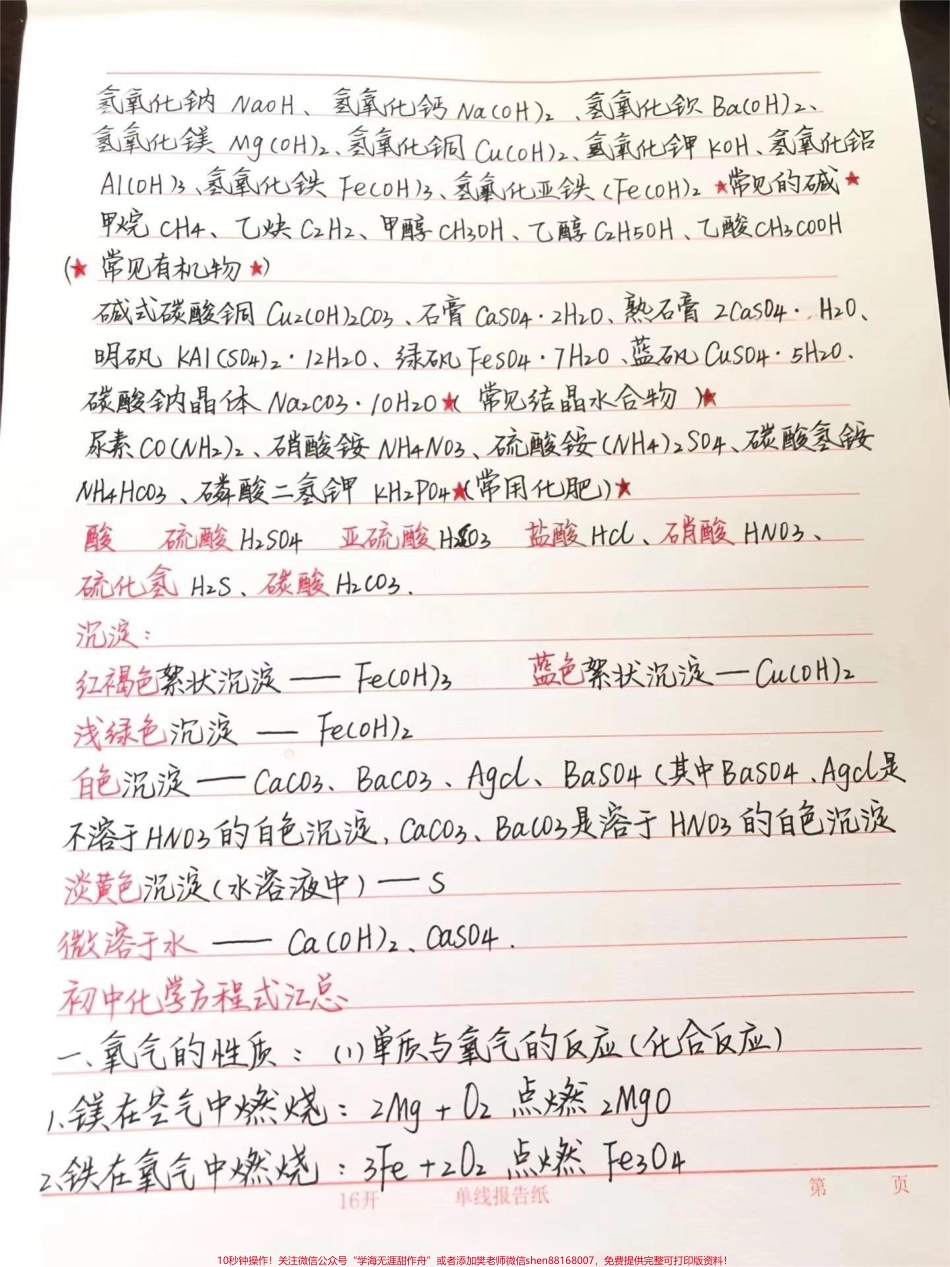 氢氧化钠 NaOH、氢氧化钙 Na(OH)2、氢氧化钡 Ba(OH)2、
氢氧化镁 Mg(OH)2、氢氧化铜 Cu(OH)2、氢氧化钾 KOH、氢氧化铝
Al(OH)3、氢氧化铁 Fe(OH)3、氢氧化亚铁(Fe(OH)2 ★常见的碱★
甲烷 CH4、乙炔 C2H2、甲醇 CH3OH、乙醇 C2H5OH、乙酸CH3COOH
(★ 常见有机物 ★)
碱式碳酸铜 Cu2(OH)2CO3、石膏 CaSO4·2H2O、熟石膏 2CaSO4·H2O、
明矾 KAl(SO4)2·12H2O、绿矾 FeSO4·7H2O、蓝矾 CuSO4·5H2O.
碳酸钠晶体 Na2CO3·10H2O★( 常见结晶水合物 )★
尿素 CO(NH2)2、硝酸铵 NH4NO3、硫酸铵(NH4)2SO4、碳酸氢铵
NH4HCO3、磷酸二氢钾 KH2PO4★(常用化肥)★
酸 硫酸 H2SO4 亚硫酸 H2SO3 盐酸 HCl、硝酸 HNO3、
硫化氢 H2S、碳酸 H2CO3.
沉淀:
红褐色絮状沉淀 —— Fe(OH)3 蓝色絮状沉淀 — Cu(OH)2
浅绿色沉淀 — Fe(OH)2
白色沉淀 —— CaCO3、BaCO3、AgCl、BaSO4 (其中BaSO4、AgCl是
不溶于HNO3的白色沉淀,CaCO3、BaCO3是溶于 HNO3的白色沉淀
淡黄色沉淀(水溶液中) — S
微溶于水 —— Ca(OH)2、CaSO4.
初中化学方程式汇总
一、氧气的性质: (1)单质与氧气的反应(化合反应)
1.镁在空气中燃烧: 2Mg + O2 点燃 2MgO
2.铁在氧气中燃烧: 3Fe + 2O2 点燃 Fe3O4
16开 单线报告纸 第 页
10秒钟操作!关注微信公众号“学海无涯甜作舟”或者添加樊老师微信shen88168007,免费提供完整可打印版资料!